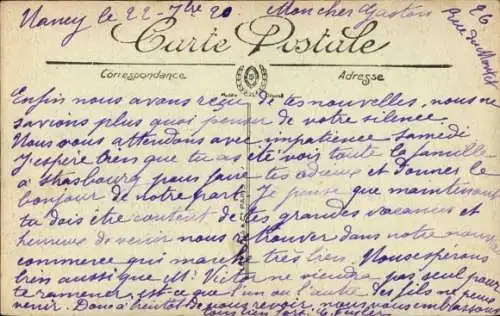 Nancy le 22 - 7bre 20 Mon cher Gaston
26
rue du
Carte Postale
Correspondance
Adresse
Enfin nous avons reçu de tes nouvelles, nous ne
savions plus quoi penser de votre silence.
Nous vous attendons avec impatience samedi
J'espère bien que tu as été voir toute la famille
à Strasbourg pour faire tes adieux et donner le
bonjour de notre part. Je pense que maintenant
tu dois être content de tes grandes vacances et
heureux de venir nous retrouver dans notre nouveau
commerce qui marche très bien. Nous espérons
bien aussi que Mr Victor ne viendra pas seul pour
te ramener, est-ce que l'un ou l'autre des fils ne peut
venir. Donc à bientôt de nous revoir, nous vous embrassons
tous bien fort.